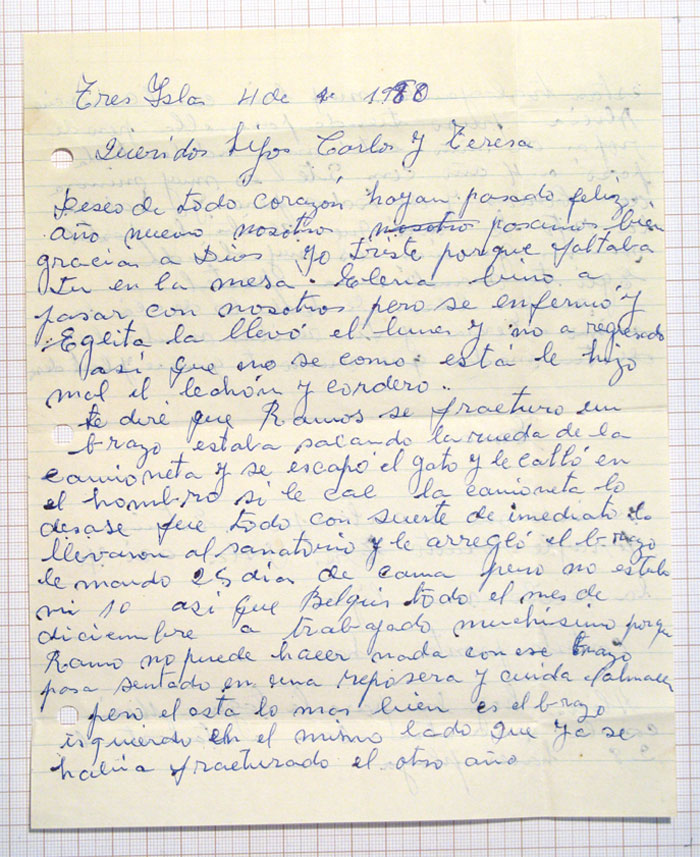 Tres Yslas 4 de 1 1980
Queridos hijos Carlos y Teresa
Deseo de todo corazón hayan pasado feliz
año nuevo nosotros nosotro pasamos bien
gracias a Dios yo triste porque faltaba
tu en la mesa. Eleria bino a
pasar con nosotros pero se enfermó y
Eglita la llevó el lunes y no a regresado
así que no se como está le hizo
mal el lechón y cordero..
te diré que Ramos se fracturo un
brazo estaba sacando la rueda de la
camioneta y se escapó el gato y le calló en
el hombro si le cae la camioneta lo
desase fue todo con suerte de imediato lo
llevaron al sanatorio y le arregló el brazo
le mando 25 dias de cama pero no estubo
ni 10 así que Belquis todo el mes de
diciembre a trabajado muchisimo porque
Ramo no puede hacer nada con ese brazo
pasa sentado en una reposera y cuida almacen
pero el está lo mas bien es el brazo
isquierdo en el mismo lado que ya se
habia fracturado el otro año